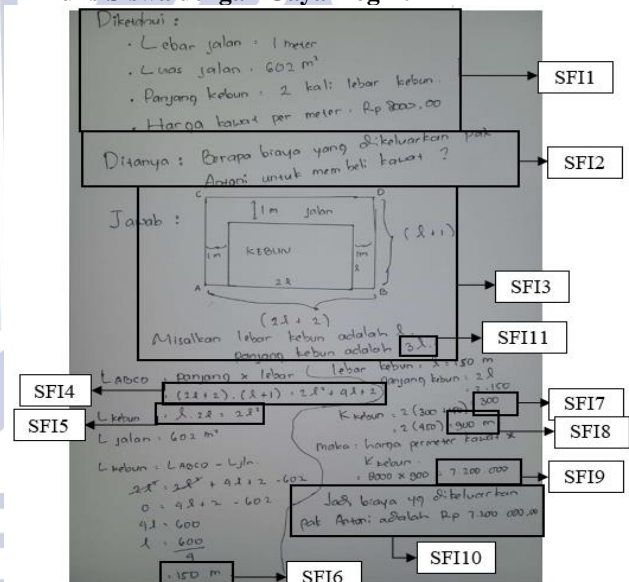 Diketahui :
• Lebar jalan = 1 meter
• Luas jalan = 602 m²
• Panjang kebun = 2 kali lebar kebun.
• Harga kawat per meter = Rp 8000,00
SFI1
Ditanya : Berapa biaya yang dikeluarkan pak
Antoni untuk membeli kawat ?
SFI2
Jawab :
C D
1 m jalan
1m KEBUN 1m
l
(l+1)
A 2l B
(2l + 2)
SFI3
Misalkan lebar kebun adalah l
panjang kebun adalah 3l.
SFI11
L ABCD = panjang x lebar
= (2l+2) . (l+1) = 2l² + 4l + 2
SFI4
L kebun = l . 2l = 2l²
SFI5
L jalan = 602 m²
L kebun = L ABCD - L jln.
2l² = 2l² + 4l + 2 - 602
0 = 4l + 2 - 602
4l = 600
l = 600
4
= 150 m
SFI6
lebar kebun = l = 150 m
panjang kebun = 2l
= 2.150
= 300
SFI7
K kebun = 2 (300 + 150)
= 2 (450) = 900 m
SFI8
maka = harga permeter kawat x
K kebun
= 8000 x 900 = 7.200.000
SFI9
Jadi biaya yg dikeluarkan
pak Antoni adalah Rp 7.200.000,00
SFI10